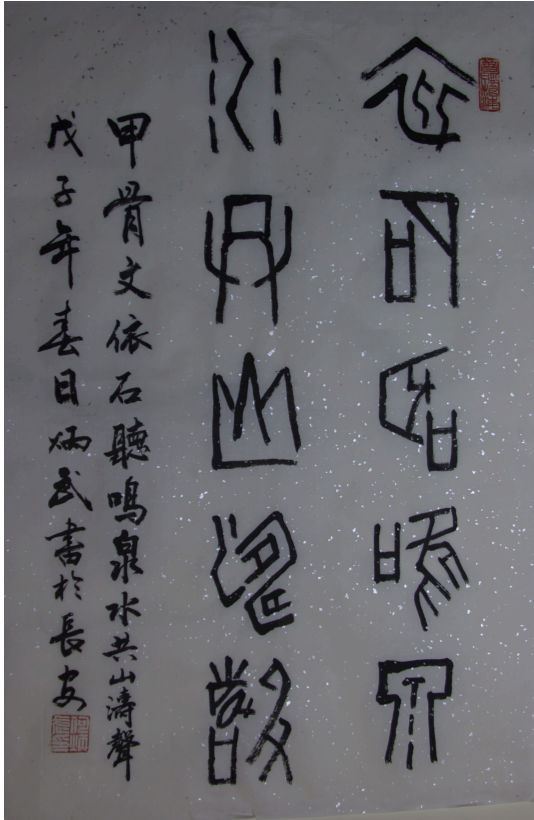 依石聽鳴泉
水共山濤聲
甲骨文依石聽鳴泉水共山濤聲
戊子年春日炳武書於長安